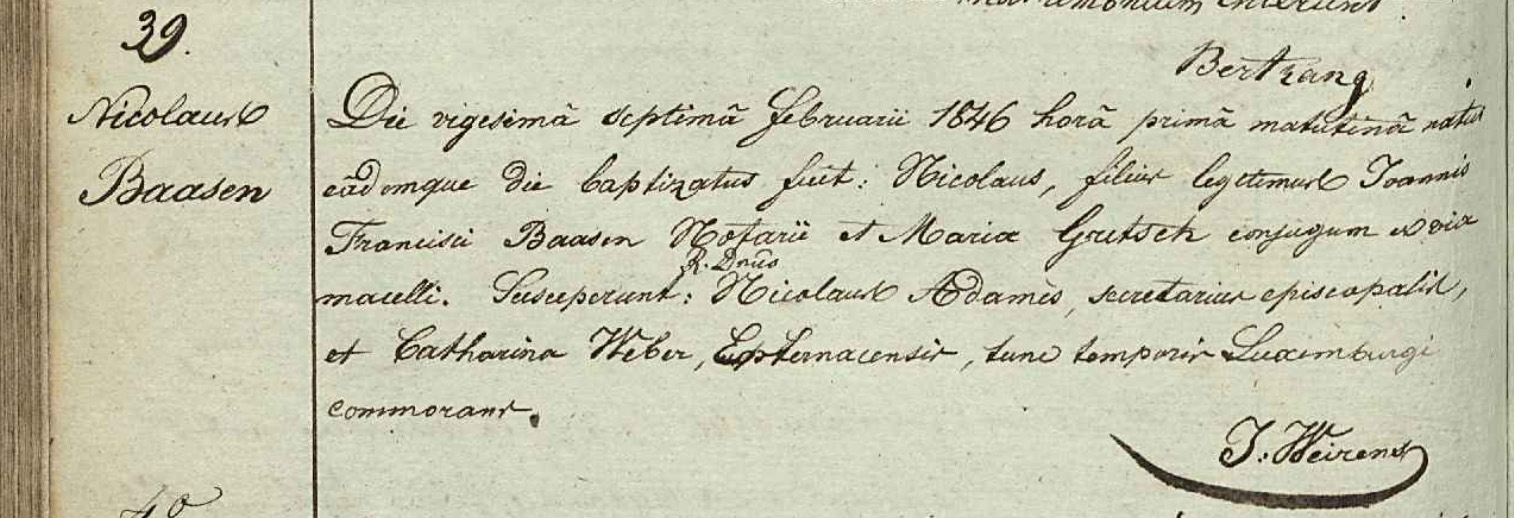 matrimonium inierunt.
39.
Bertrang
Nicolaus
Baasen
Die vigesimâ septimâ februarii 1846 horâ primâ matutinâ natus
eâdemque die baptizatus fuit: Nicolaus, filius legitimus Joannis
Francisci Baasen Notarii et Mariæ Gretsch conjugum ex viâ
R. Dnus
macelli. Susceperunt: Nicolaus Adames, secretarius episcopalis,
et Catharina Weber, Epternacensis, tunc temporis Luxemburgi
commorans.
J. Weirens
40